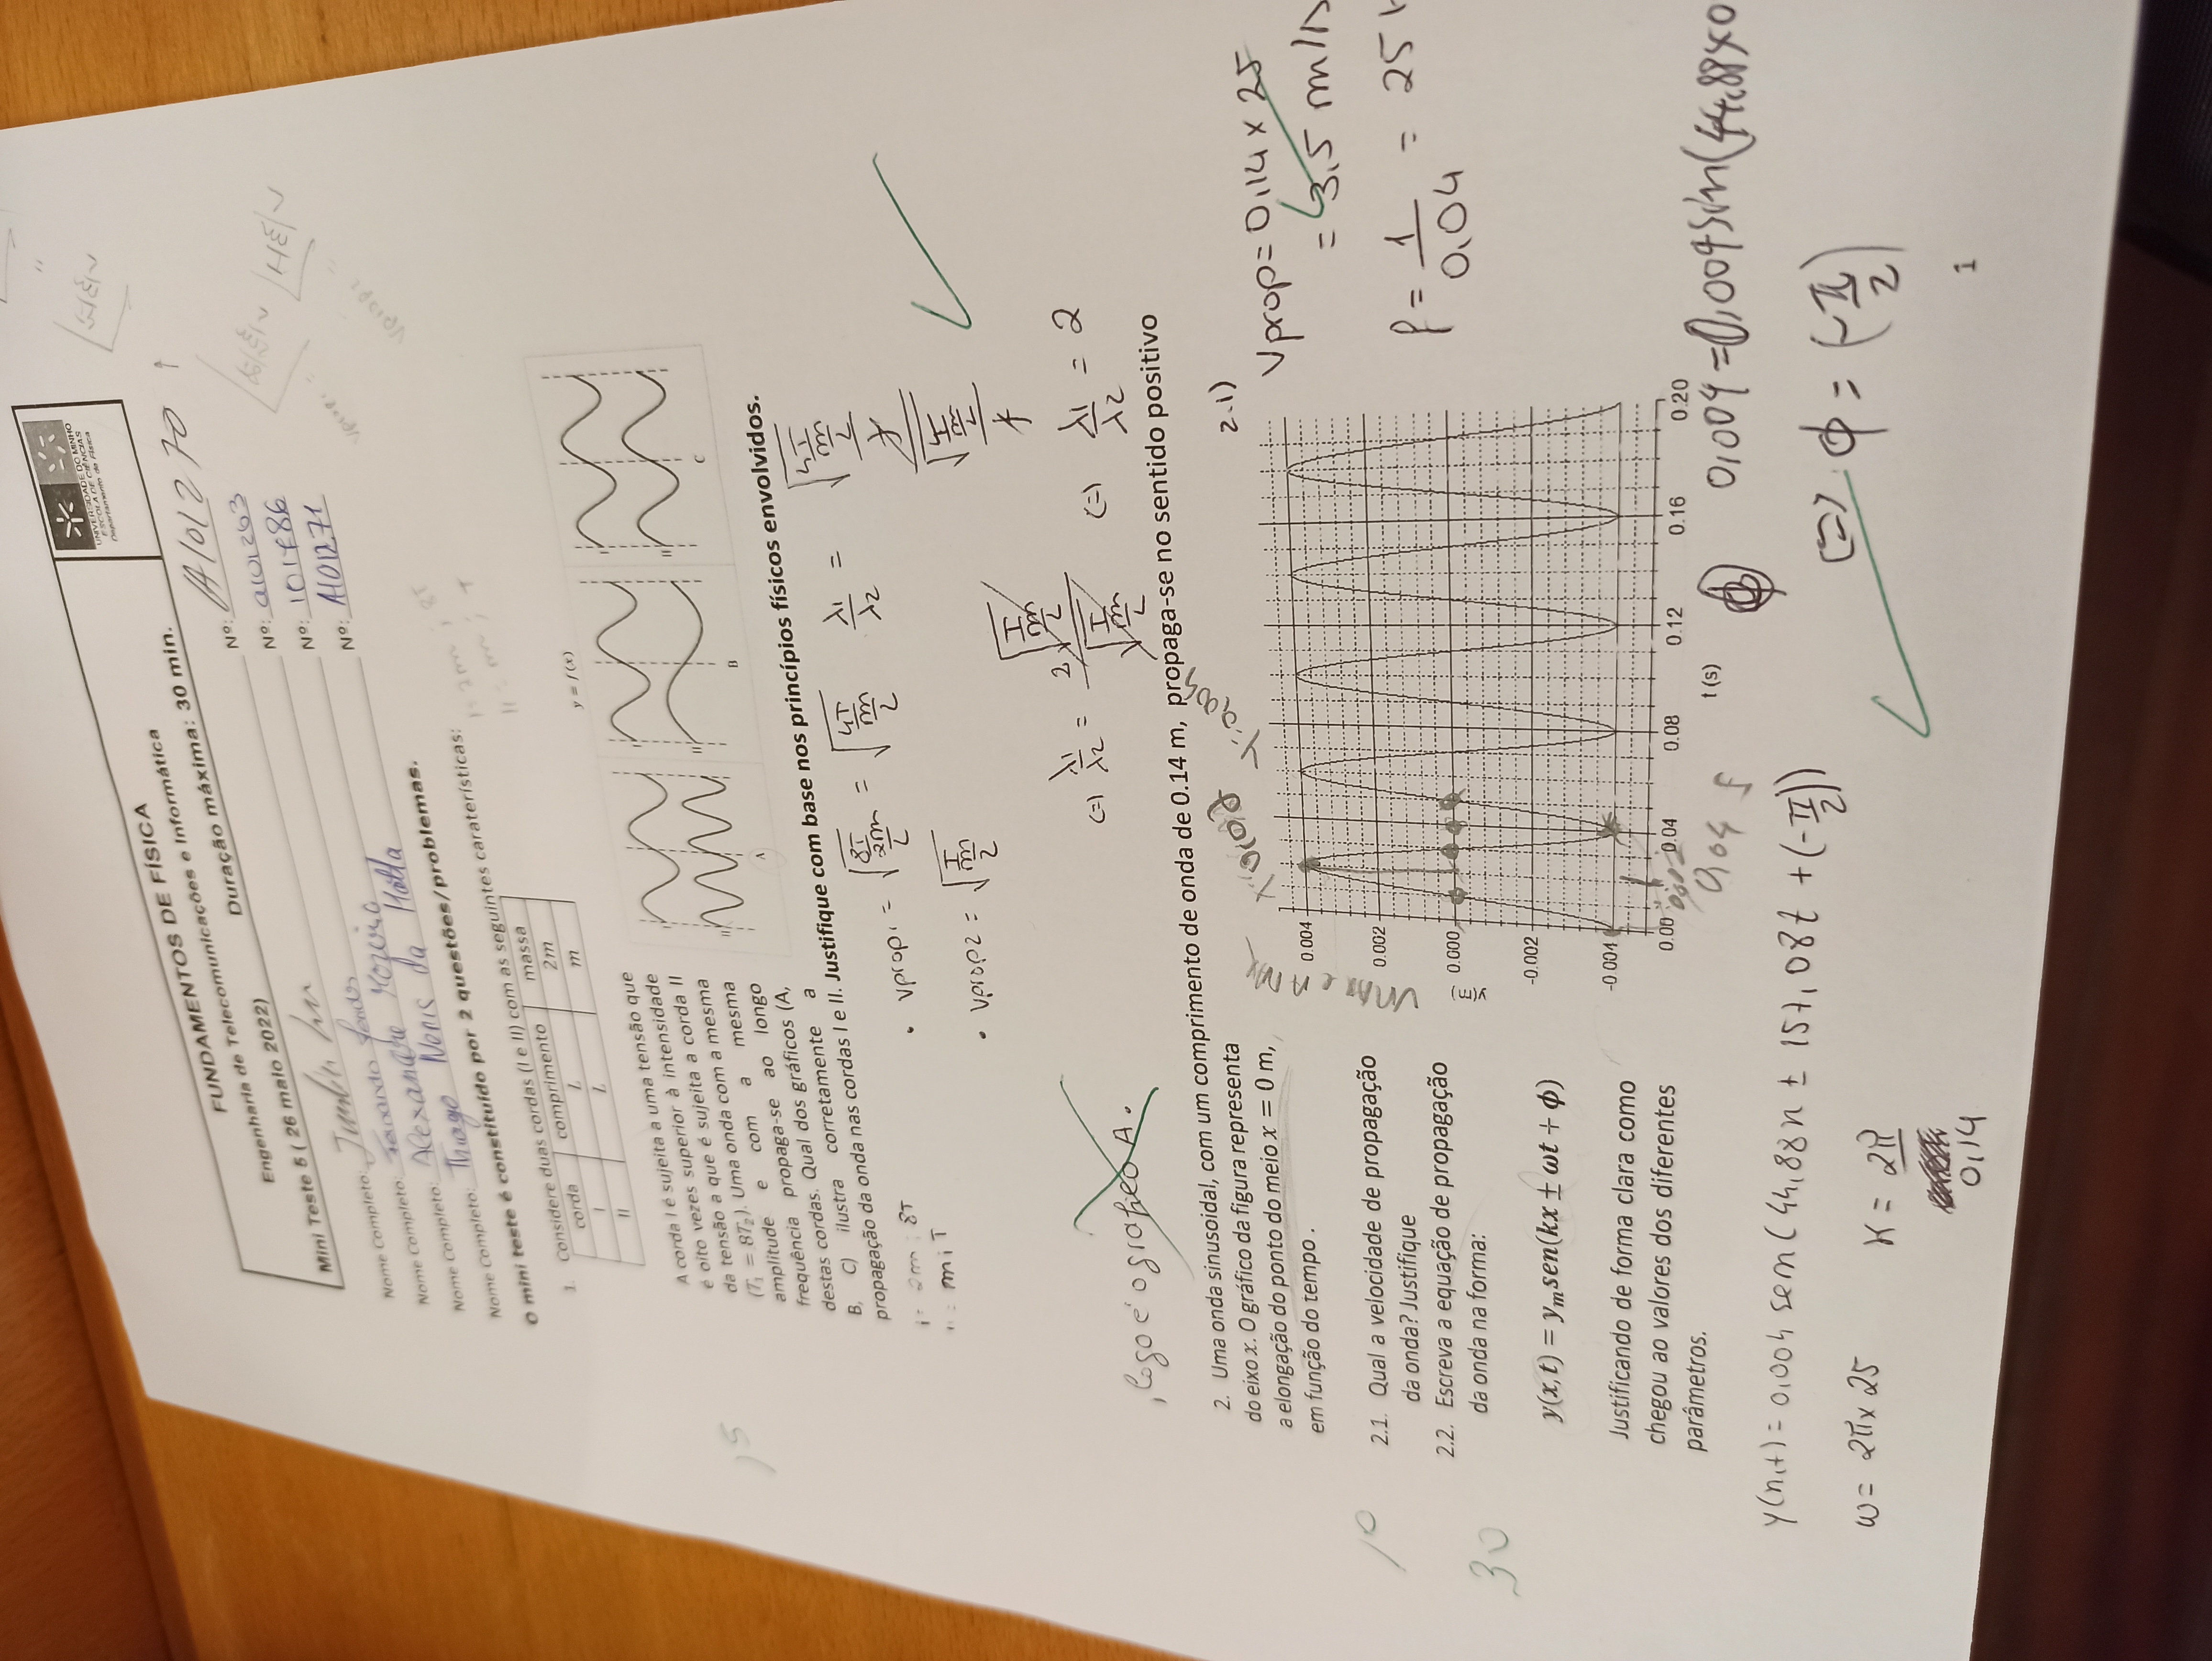 UNIVERSIDADE DO MINHO
ESCOLA DE CIÊNCIAS
Departamento de Física
FUNDAMENTOS DE FÍSICA
Engenharia de Telecomunicações e Informática
Mini Teste 5 ( 26 maio 2022) Duração máxima: 30 min.
Nome Completo: Nº: A101270
Nome Completo: Fernando Nº: a101263
Nome Completo: Alexandre Nº: 101786
Nome Completo: Thiago Neris da Matta Nº: A101271
O mini teste é constituído por 2 questões/problemas.
1. Considere duas cordas (I e II) com as seguintes caraterísticas:
corda comprimento massa
I L 2m
II L m
I = 2m ; 8T
II = m ; T
A corda I é sujeita a uma tensão que
é oito vezes superior à intensidade
da tensão a que é sujeita a corda II
(T₁ = 8T₂). Uma onda com a mesma
amplitude e com a mesma
frequência propaga-se ao longo
destas cordas. Qual dos gráficos (A,
B, C) ilustra corretamente a
propagação da onda nas cordas I e II. Justifique com base nos princípios físicos envolvidos.
y = f(x)
I I I
II II II
A B C
15
I = 2m ; 8T
II = m ; T
• Vprop1 = √(8T/(2m/L)) = √(4T/(m/L)) λ1/λ2 =
• Vprop2 = √(T/(m/2))
(=) λ1/λ2 = 2√(T/(m/2))/√(T/(m/L)) (=) λ1/λ2 = 2
, logo é o gráfico A.
2. Uma onda sinusoidal, com um comprimento de onda de 0.14 m, propaga-se no sentido positivo
do eixo x. O gráfico da figura representa
a elongação do ponto do meio x = 0 m,
em função do tempo .
10
2.1. Qual a velocidade de propagação
da onda? Justifique
30
2.2. Escreva a equação de propagação
da onda na forma:
y(x,t) = yₘsen(kx ± ωt + ϕ)
Justificando de forma clara como
chegou ao valores dos diferentes
parâmetros.
y(m)
0.004
0.002
0.000
-0.002
-0.004
0.00 0.04 0.08 0.12 0.16 0.20
t (s)
0,04 s
2.1)
Vprop = 0,14 × 25
= 3,5 m/s
f = 1/0.04 = 25
0,004 = 0,004 sin(44,88×0
(=) ϕ = (-π/2)
y(x,t) = 0,004 sen(44,88x ± 157,08t + (-π/2))
ω = 2π × 25
K = 2π/0,14
1